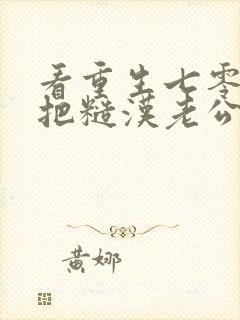 看重生七零
把糙汉老公
黄娜